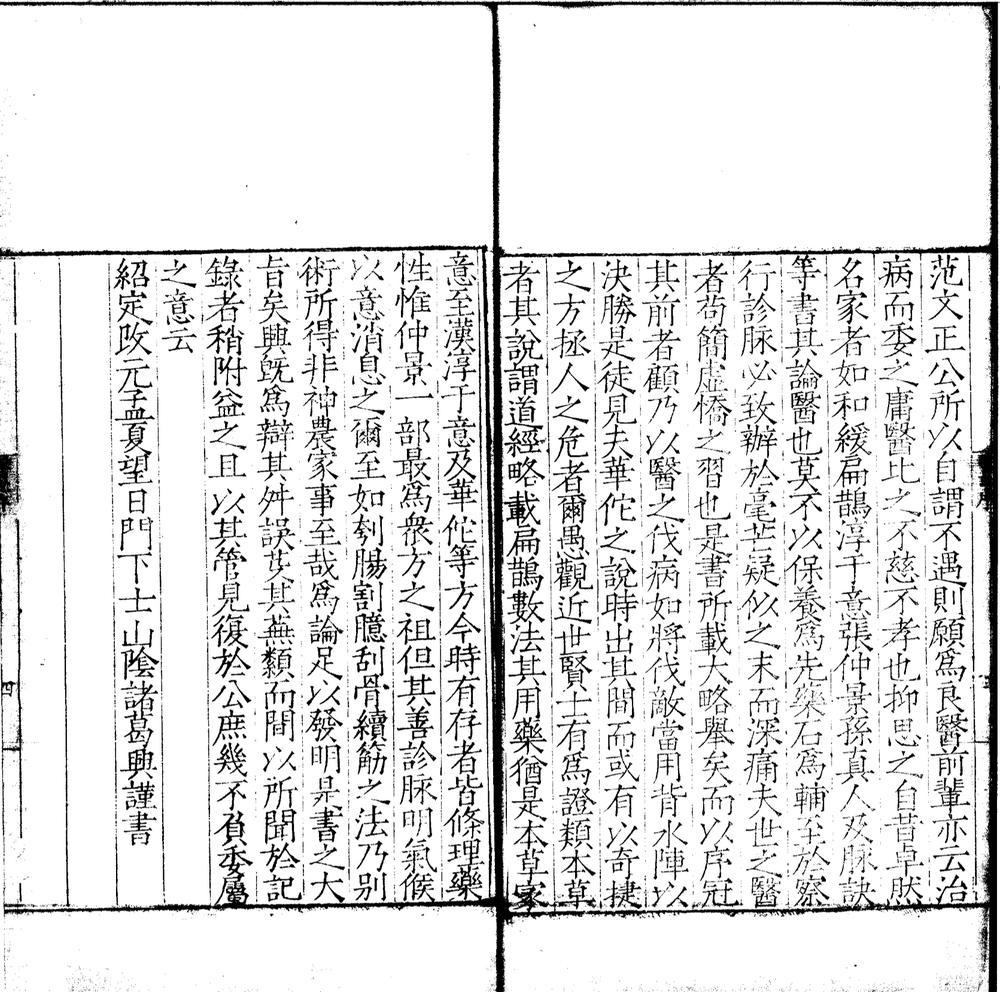 范文正公所以自謂不遇則願爲良醫前輩亦云治
病而委之庸醫比之不慈不孝也抑思之自昔卓然
名家者如和緩扁鵲淳于意張仲景孫真人及脉訣
等書其論醫也莫不以保養爲先藥石爲輔至於察
行診脉必致辦於毫芒疑似之末而深痛夫世之醫
者苟簡虛憍之習也是書所載大略舉矣而以序冠
其前者顧乃以醫之伐病如將伐敵當用背水陣以
決勝是徒見夫華佗之說時出其間而或有以奇捷
之方拯人之危者爾愚觀近世賢士有爲證類本草
者其說謂道經略載扁鵲數法其用藥猶是本草家
意至漢淳于意及華佗等方今時有存者皆條理藥
性惟仲景一部最爲衆方之祖但其善診脉明氣候
以意消息之爾至如刳腸割臆刮骨續筋之法乃別
術所得非神農家事至哉爲論足以發明是書之大
旨矣興旣爲辯其舛誤芟其蕪纇而間以所聞於記
錄者稍附益之且以其管見復於公庶幾不負委屬
之意云
紹定改元孟夏望日門下士山陰諸葛興謹書
序
三
四